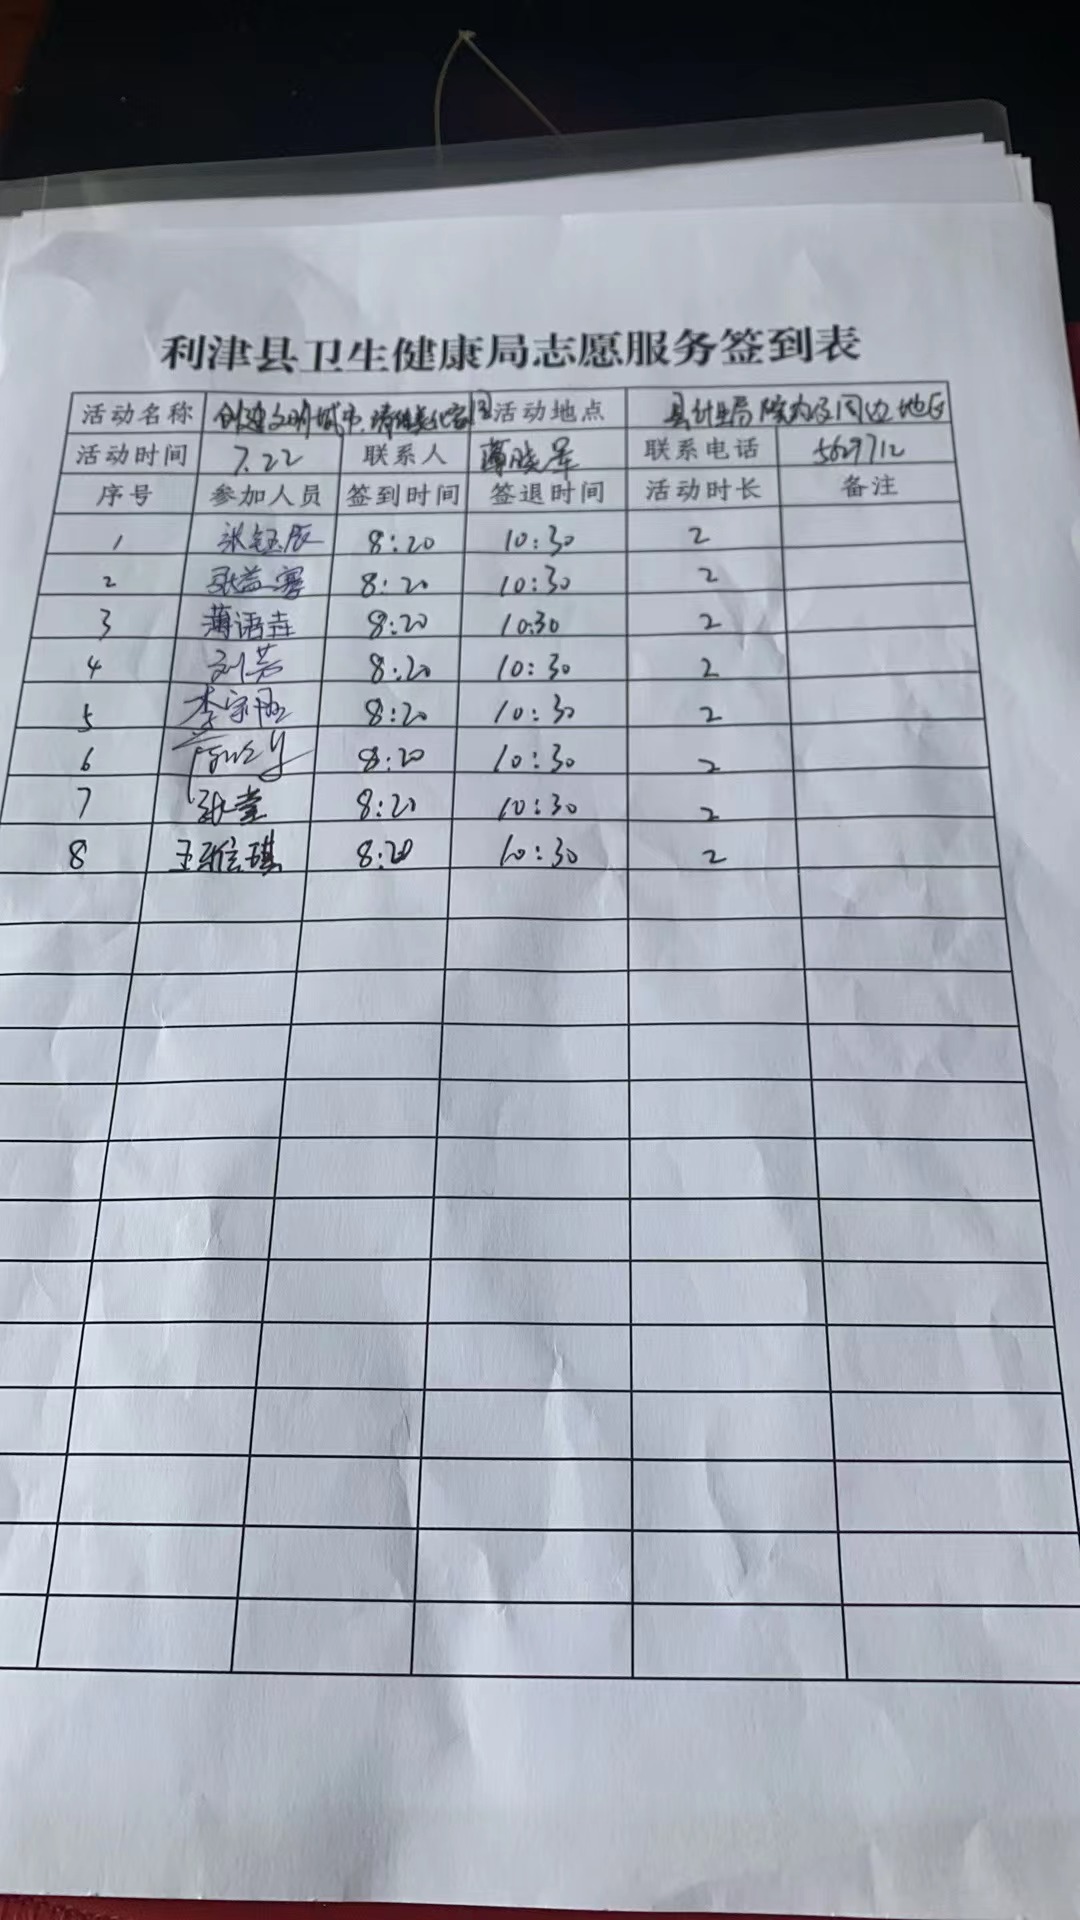 利津县卫生健康局志愿服务签到表
活动名称 创建文明城市、清洁美化家园 活动地点 县计生局院内及周边地区
活动时间 7.22 联系人 薄晓军 联系电话 5629712
序号 参加人员 签到时间 签退时间 活动时长 备注
1 张钰辰 8:20 10:30 2
2 张益赛 8:20 10:30 2
3 薄语垚 8:20 10:30 2
4 刘芳 8:20 10:30 2
5 李宗 8:20 10:30 2
6 8:20 10:30 2
7 张堂 8:20 10:30 2
8 王 琪 8:20 10:30 2